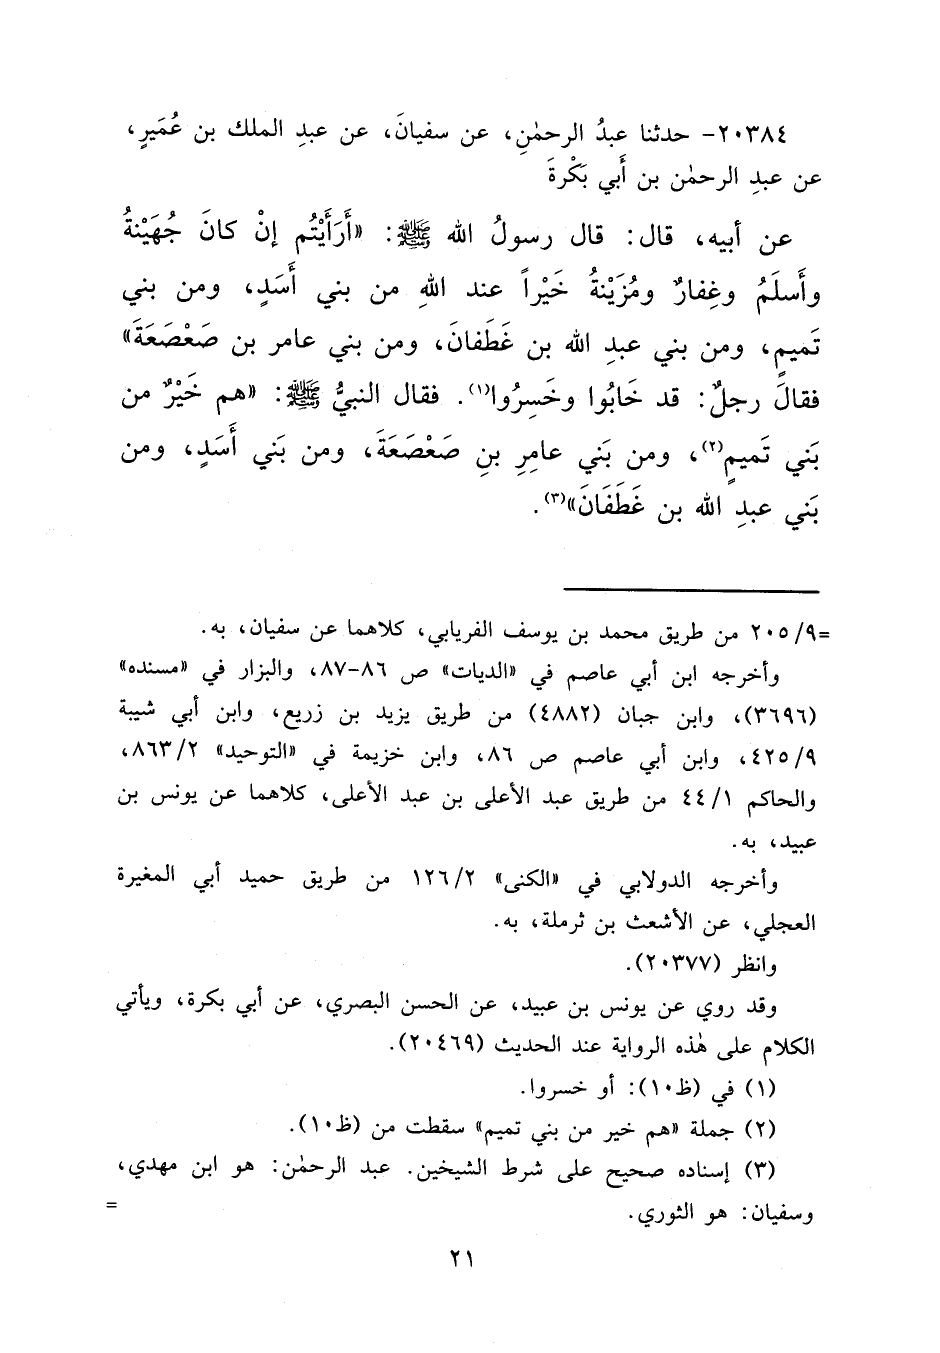 ٢٠٣٨٤- حدثنا عبدُ الرحمٰنِ، عن سفيانَ، عن عبدِ الملك بن عُمَيرٍ،
عن عبدِ الرحمٰن بن أَبي بَكْرةَ
عن أبيه، قال: قال رسولُ الله ﷺ: «أَرَأَيْتُم إنْ كانَ جُهَيْنةُ
وأَسلَمُ وغِفارٌ ومُزَيْنةُ خَيْراً عند اللهِ من بني أَسَدٍ، ومن بني
تَميمٍ، ومن بني عبدِ الله بن غَطَفانَ، ومن بني عامر بن صَعْصَعَةَ»
فقالَ رجلٌ: قد خَابُوا وخَسِرُوا(١). فقال النبيُّ ﷺ: «هم خَيْرٌ من
بَني تَميمٍ(٢)، ومن بَني عامِرِ بنِ صَعْصَعَةَ، ومن بَني أَسَدٍ، ومن
بَني عبدِ الله بن غَطَفَانَ»(٣).
=٢٠٥/٩ من طريق محمد بن يوسف الفريابي، كلاهما عن سفيان، به.
وأخرجه ابن أبي عاصم في «الديات» ص ٨٦-٨٧، والبزار في «مسنده»
(٣٦٩٦)، وابن حبان (٤٨٨٢) من طريق يزيد بن زريع، وابن أبي شيبة
٤٢٥/٩، وابن أبي عاصم ص ٨٦، وابن خزيمة في «التوحيد» ٨٦٣/٢،
والحاكم ٤٤/١ من طريق عبد الأعلى بن عبد الأعلى، كلاهما عن يونس بن
عبيد، به.
وأخرجه الدولابي في «الكنى» ١٢٦/٢ من طريق حميد أبي المغيرة
العجلي، عن الأشعث بن ثرملة، به.
وانظر (٢٠٣٧٧).
وقد روي عن يونس بن عبيد، عن الحسن البصري، عن أبي بكرة، ويأتي
الكلام على هٰذه الرواية عند الحديث (٢٠٤٦٩).
(١) في (ظ١٠): أو خسروا.
(٢) جملة «هم خير من بني تميم» سقطت من (ظ١٠).
(٣) إسناده صحيح على شرط الشيخين. عبد الرحمٰن: هو ابن مهدي،
وسفيان: هو الثوري. =
٢١